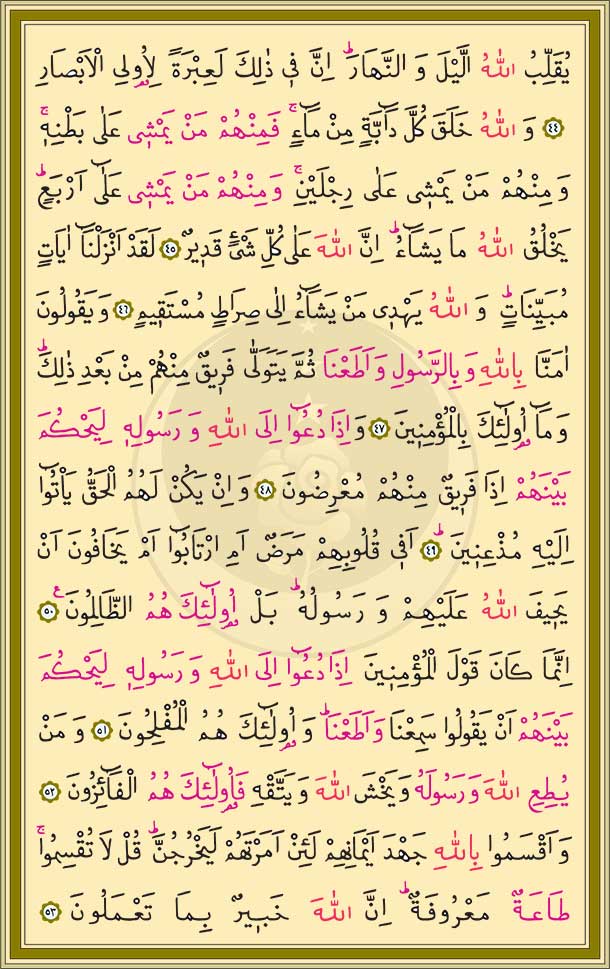 يُقَلِّبُ اللّٰهُ الَّيْلَ وَ النَّهَارَۜ اِنَّ ف۪ي ذٰلِكَ لَعِبْرَةً لِاُو۬لِي الْاَبْصَارِ
﴿٤٤﴾ وَ اللّٰهُ خَلَقَ كُلَّ دَٓابَّةٍ مِنْ مَٓاءٍۚ فَمِنْهُمْ مَنْ يَمْش۪ي عَلٰى بَطْنِه۪ۚ
وَ مِنْهُمْ مَنْ يَمْش۪ي عَلٰى رِجْلَيْنِۚ وَ مِنْهُمْ مَنْ يَمْش۪ي عَلٰٓى اَرْبَعٍۜ
يَخْلُقُ اللّٰهُ مَا يَشَٓاءُۜ اِنَّ اللّٰهَ عَلٰى كُلِّ شَيْءٍ قَد۪يرٌ ﴿٤٥﴾ لَقَدْ اَنْزَلْنَٓا اٰيَاتٍ
مُبَيِّنَاتٍۜ وَ اللّٰهُ يَهْد۪ي مَنْ يَشَٓاءُ اِلٰى صِرَاطٍ مُسْتَق۪يمٍ ﴿٤٦﴾ وَ يَقُولُونَ
اٰمَنَّا بِاللّٰهِ وَ بِالرَّسُولِ وَ اَطَعْنَا ثُمَّ يَتَوَلّٰى فَر۪يقٌ مِنْهُمْ مِنْ بَعْدِ ذٰلِكَۜ
وَ مَٓا اُو۬لٰٓئِكَ بِالْمُؤْمِن۪ينَ ﴿٤٧﴾ وَ اِذَا دُعُٓوا اِلَى اللّٰهِ وَ رَسُولِه۪ لِيَحْكُمَ
بَيْنَهُمْ اِذَا فَر۪يقٌ مِنْهُمْ مُعْرِضُونَ ﴿٤٨﴾ وَ اِنْ يَكُنْ لَهُمُ الْحَقُّ يَأْتُٓوا
اِلَيْهِ مُذْعِن۪ينَۜ ﴿٤٩﴾ اَف۪ي قُلُوبِهِمْ مَرَضٌ اَمِ ارْتَابُٓوا اَمْ يَخَافُونَ اَنْ
يَح۪يفَ اللّٰهُ عَلَيْهِمْ وَ رَسُولُهُۜ بَلْ اُو۬لٰٓئِكَ هُمُ الظَّالِمُونَ ﴿٥٠﴾ ع
اِنَّمَا كَانَ قَوْلَ الْمُؤْمِن۪ينَ اِذَا دُعُٓوا اِلَى اللّٰهِ وَ رَسُولِه۪ لِيَحْكُمَ
بَيْنَهُمْ اَنْ يَقُولُوا سَمِعْنَا وَ اَطَعْنَاۜ وَ اُو۬لٰٓئِكَ هُمُ الْمُفْلِحُونَ ﴿٥١﴾ وَ مَنْ
يُطِعِ اللّٰهَ وَ رَسُولَهُ وَ يَخْشَ اللّٰهَ وَ يَتَّقْهِ فَاُو۬لٰٓئِكَ هُمُ الْفَٓائِزُونَ ﴿٥٢﴾
وَ اَقْسَمُوا بِاللّٰهِ جَهْدَ اَيْمَانِهِمْ لَئِنْ اَمَرْتَهُمْ لَيَخْرُجُنَّۜ قُلْ لَا تُقْسِمُواۚ
طَاعَةٌ مَعْرُوفَةٌۜ اِنَّ اللّٰهَ خَب۪يرٌ بِمَا تَعْمَلُونَ ﴿٥٣﴾